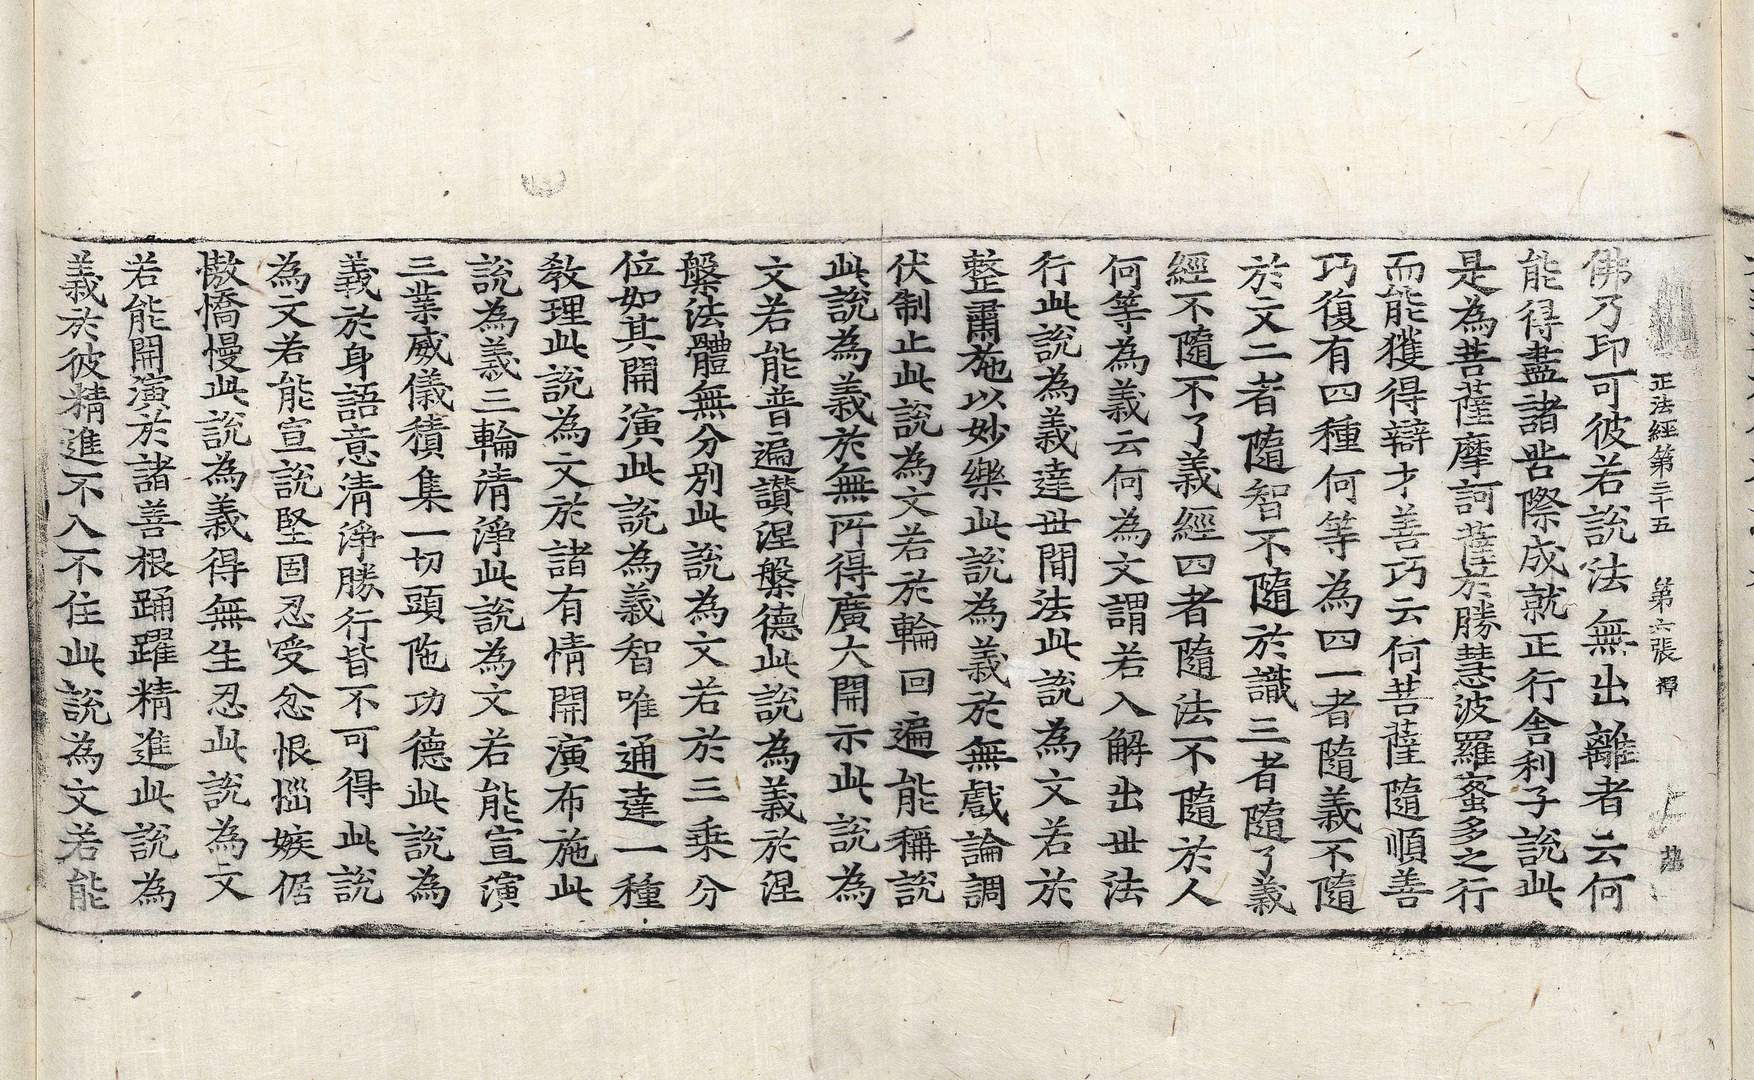 正法經第三十五 第六張 禪
佛乃印可彼若說法無出離者云何
能得盡諸呰際成就正行舍利子說此
是為菩薩摩訶薩於勝慧波羅蜜多之行
而能獲得辯才善巧云何菩薩隨順善
巧復有四種何等為四一者隨義不隨
於文二者隨智不隨於識三者隨了義
經不隨不了義經四者隨法不隨於人
何等為義云何為文謂若入解出世法
行此說為義達世間法此說為文若於
整肅施以妙樂此說為義於無戲論調
伏制止此說為文若於輪回遍能稱說
此說為義於無所得廣大開示此說為
文若能普遍讚涅槃德此說為義於涅
槃法體無分別此說為文若於三乘分
位如其開演此說為義智唯通達一種
教理此說為文於諸有情開演布施此
說為義三輪清淨此說為文若能宣演
三業威儀積集一切頭陁功德此說為
義於身語意清淨勝行皆不可得此說
為文若能宣說堅固忍受忿恨惱嫉倨
慠憍慢此說為義得無生忍此說為文
若能開演於諸善根踊躍精進此說為
義於彼精進不入不住此說為文若能